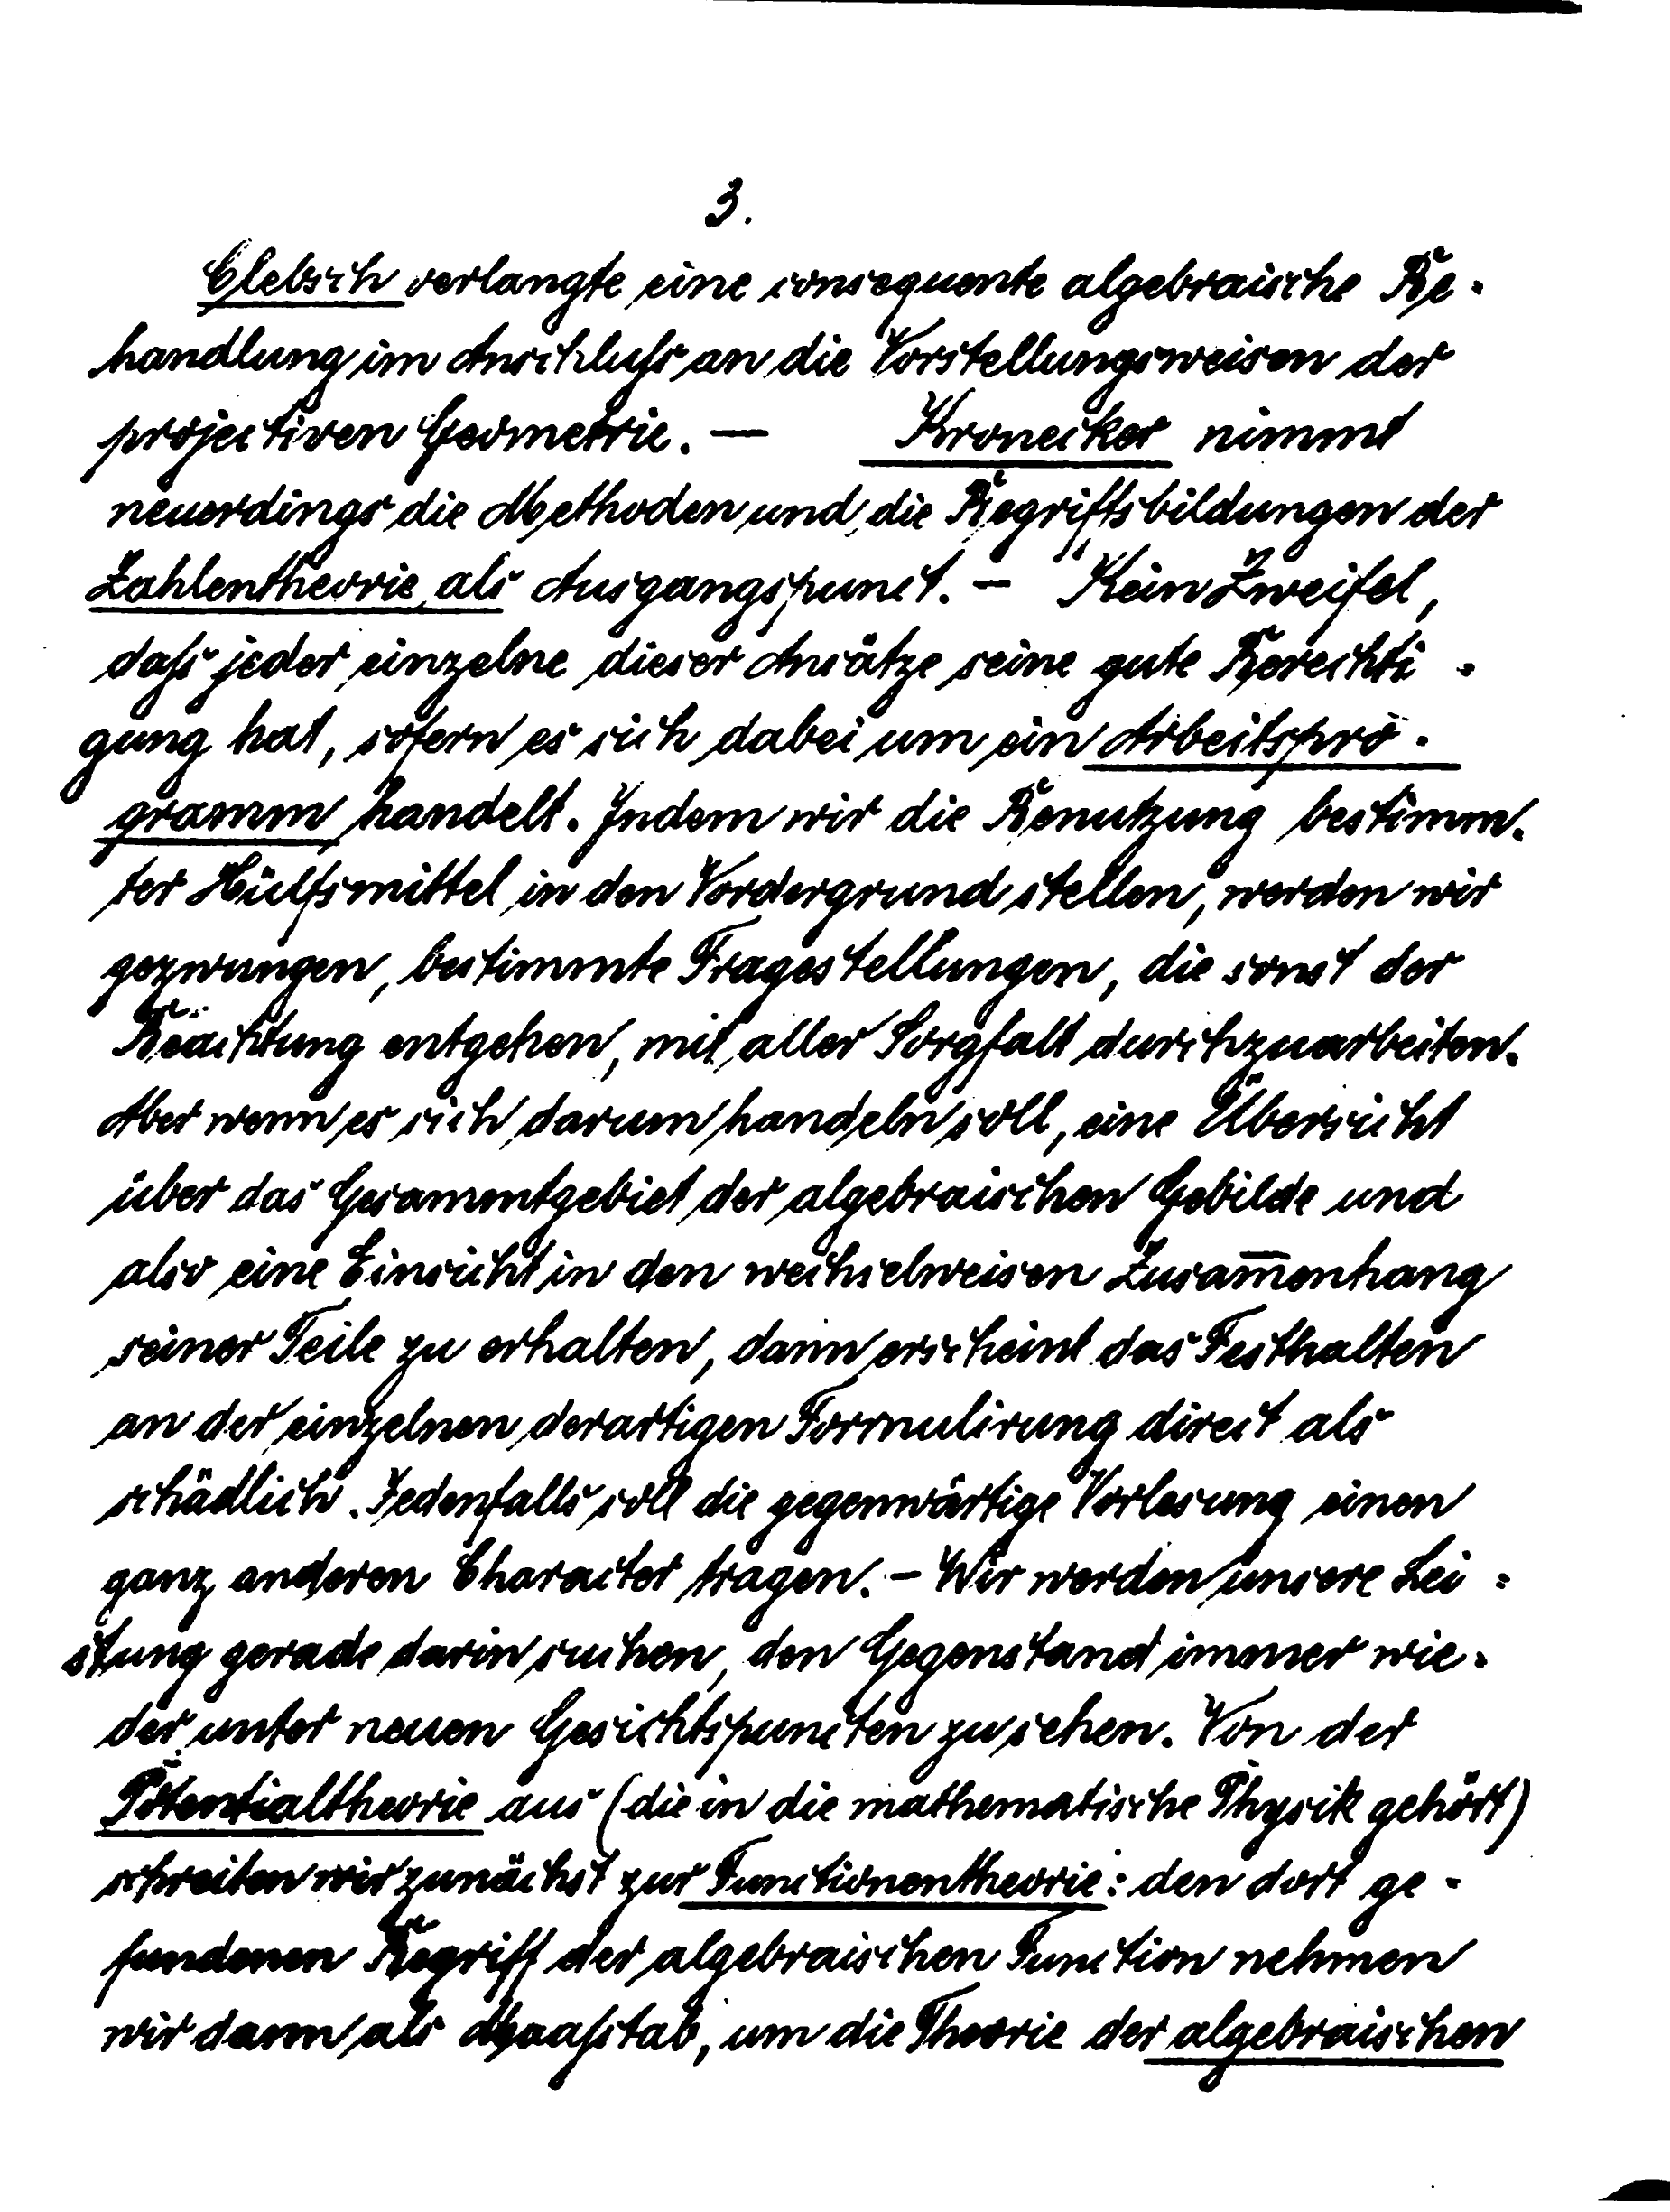 3.
Clebsch verlangte eine consequente algebraische Be-
handlung im Anschluß an die Vorstellungsweisen der
projectiven Geometrie. — Kronecker nimmt
neuerdings die Methoden und die Begriffsbildungen der
Zahlentheorie als Ausgangspunct. — Kein Zweifel,
daß jeder einzelne dieser Ansätze seine gute Berechti-
gung hat, sofern es sich dabei um ein Arbeitspro-
gramm handelt. Indem wir die Benutzung bestimm-
ter Hülfsmittel in den Vordergrund stellen, werden wir
gezwungen, bestimmte Fragestellungen, die sonst der
Beachtung entgehen, mit aller Sorgfalt durchzuarbeiten.
Aber wenn es sich darum handeln soll, eine Übersicht
über das Gesammtgebiet der algebraischen Gebilde und
also eine Einsicht in den wechselweisen Zusam̅enhang
seiner Teile zu erhalten, dann erscheint das Festhalten
an der einzelnen derartigen Formulirung direct als
schädlich. Jedenfalls soll die gegenwärtige Vorlesung einen
ganz anderen Character tragen. — Wir werden unsere Lei-
stung gerade darin suchen, den Gegenstand immer wie-
der unter neuen Gesichtspuncten zu sehen. Von der
Potentialtheorie aus (die in die mathematische Physik gehört)
schreiten wir zunächst zur Functionentheorie: den dort ge-
fundenen Begriff der algebraischen Function nehmen
wir dann als Maaßstab, um die Theorie der algebraischen